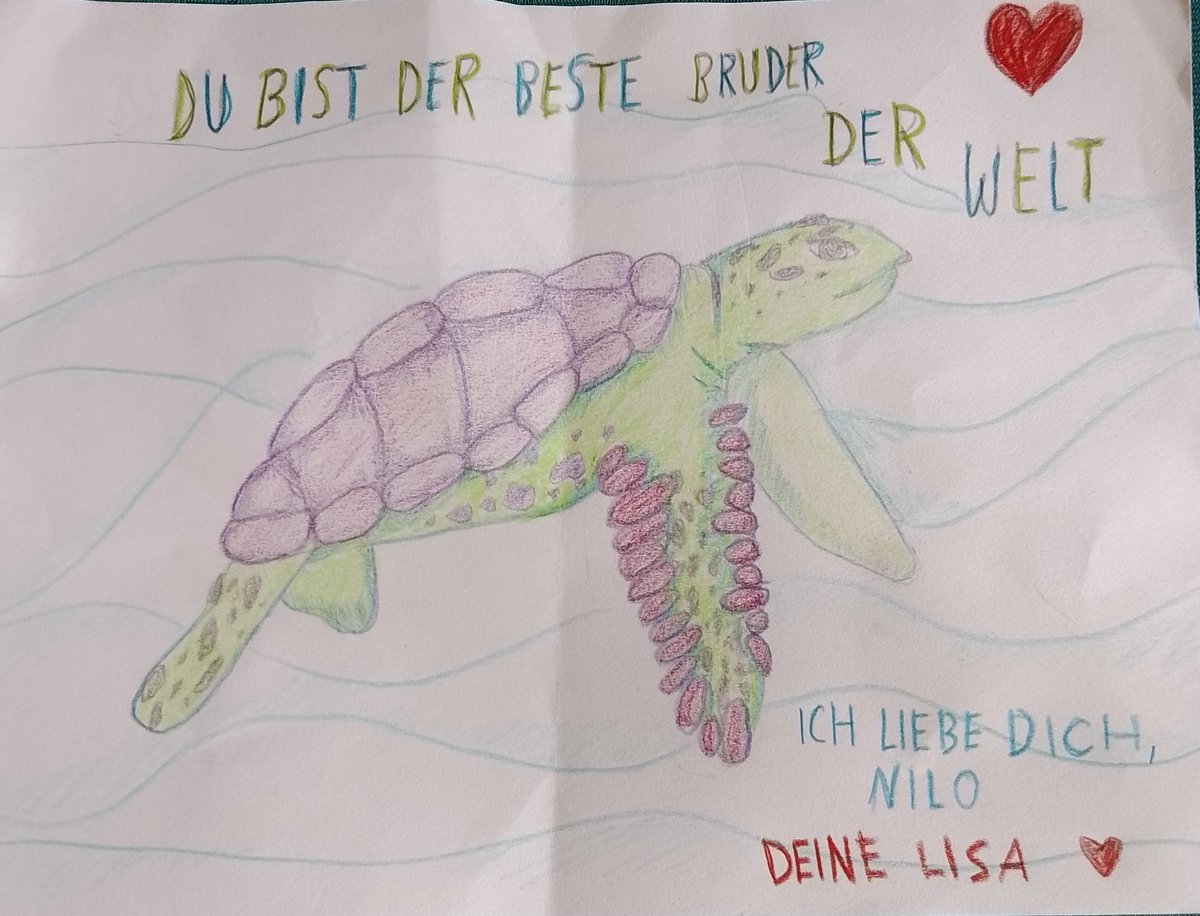 DU BIST DER BESTE BRUDER
DER WELT
ICH LIEBE DICH,
NILO
DEINE LISA